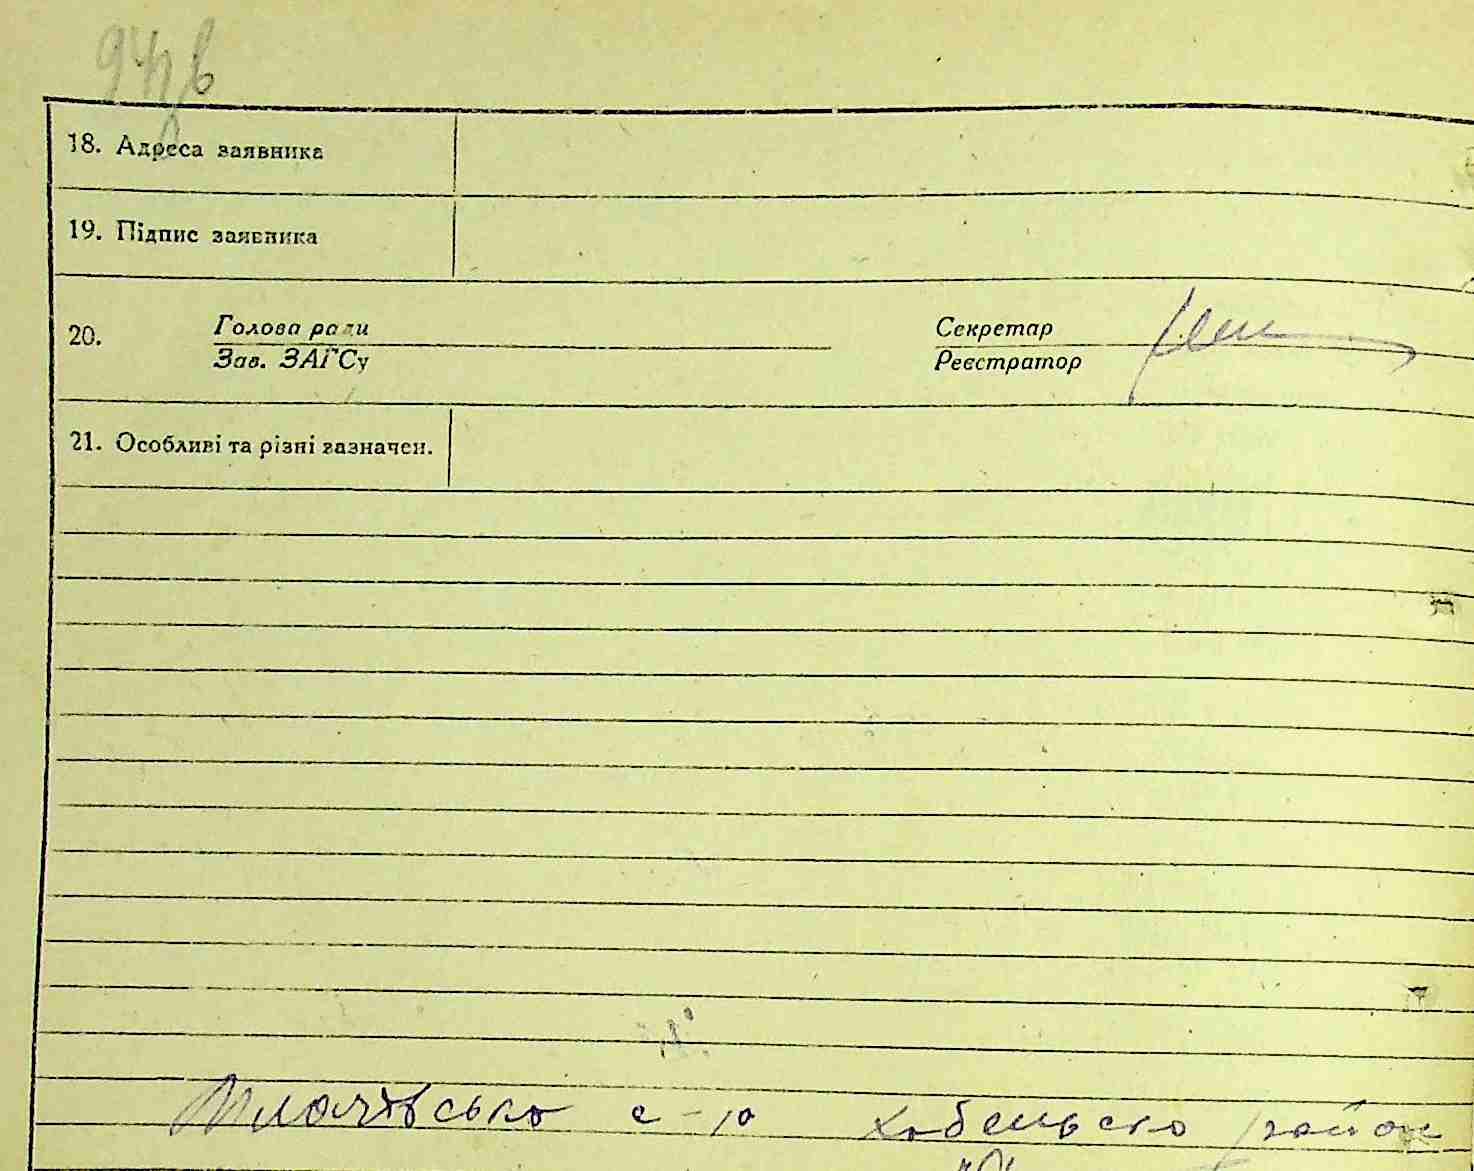 94
18. Адреса заявника
19. Підпис заявника
20. Голова ради Секретар
Зав. ЗАГСу Реєстратор
21. Особливі та різні зазначен.
район